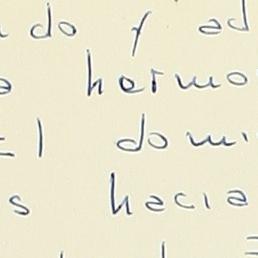 do y ad
hermo
El domi
s hacia